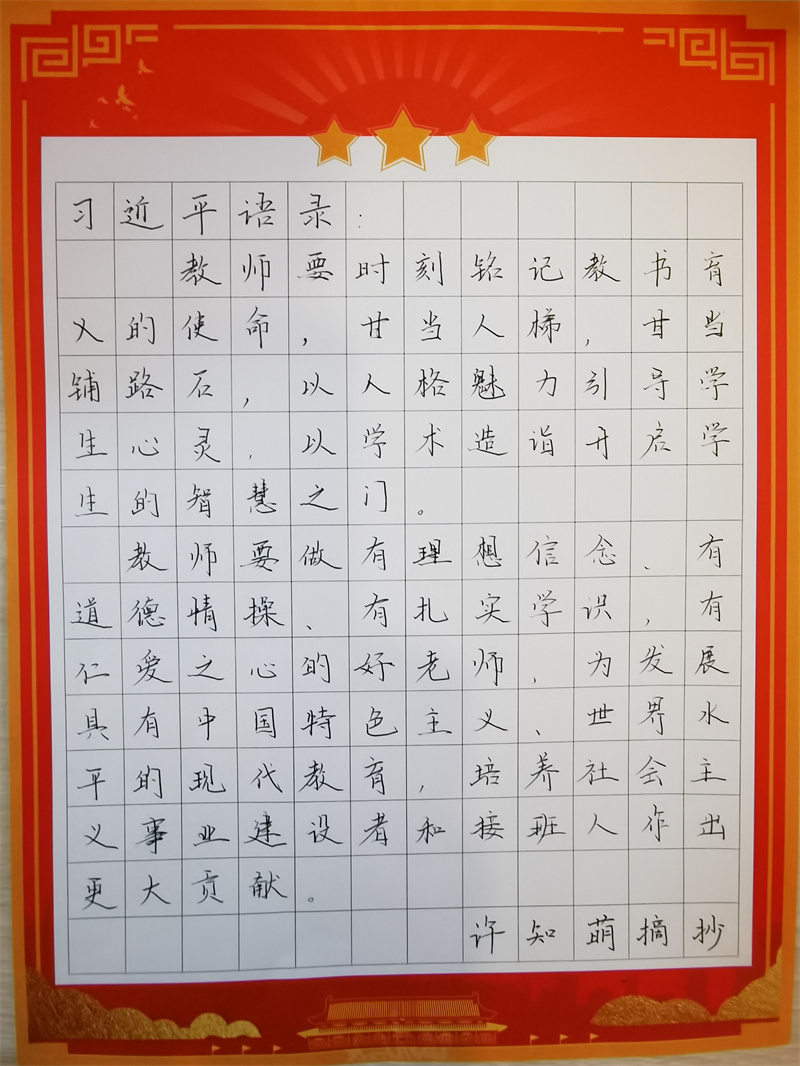 习近平语录：
教师要时刻铭记教书育
人的使命，甘当人梯，甘当
铺路石，以人格魅力引导学
生心灵，以学术造诣开启学
生的智慧之门。
教师要做有理想信念、有
道德情操、有扎实学识，有
仁爱之心的好老师，为发展
具有中国特色主义、世界水
平的现代教育，培养社会主
义事业建设者和接班人作出
更大贡献。
许知萌摘抄